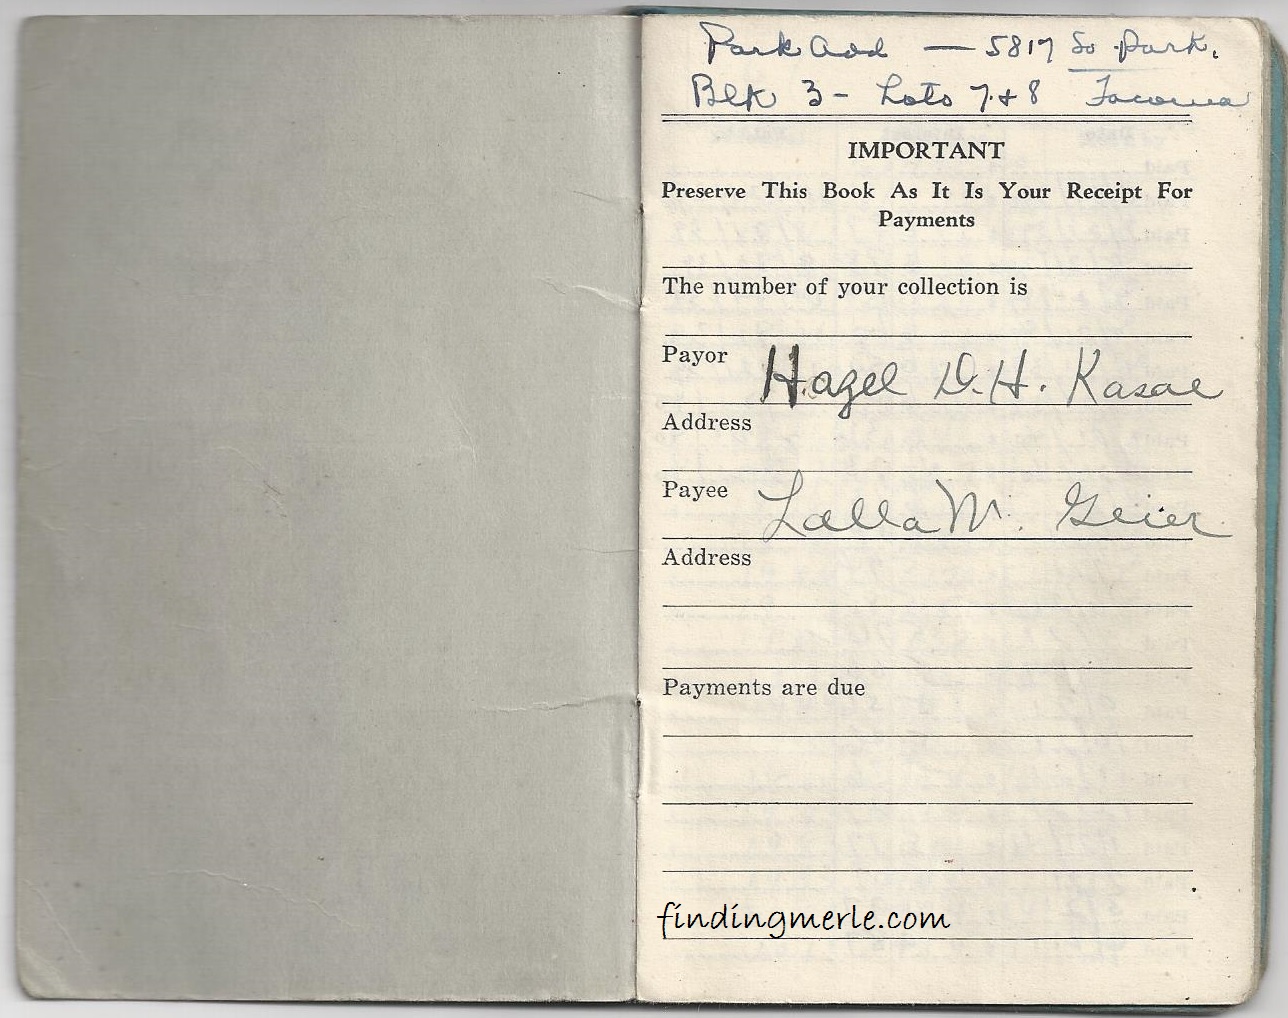 Park Add — 5817 So. Park.
Blk 3 - Lots 7 + 8 Tacoma
IMPORTANT
Preserve This Book As It Is Your Receipt For
Payments
The number of your collection is
Payor Hazel D. H. Kasae
Address
Payee Lalla M. Geier
Address
Payments are due
findingmerle.com